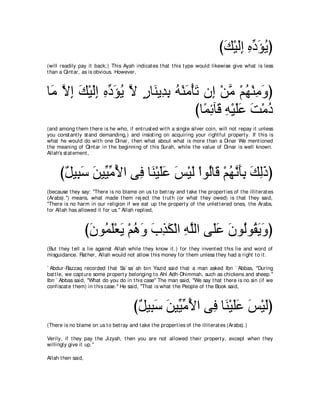 (يُؤَدِّهِ إِلَيْكَ)
(will readily pay it back;) This Ayah indicates that this type would likewise give what is less
than a Qintar, as is obvious. However,
(وَمِنْهُمْ مَّنْ إِن تَأْمَنْهُ بِدِينَارٍ لاَّ يُؤَدِّهِ إِلَيْكَ إِلاَّ مَا
دُمْتَ عَلَيْهِ قَآئِمًا)
(and among them there is he who, if entrusted with a single silver coin, will not repay it unless
you constantly stand demanding,) and insisting on acquiring your rightful property. If this is
what he would do with one Dinar, then what about what is more than a Dinar We mentioned
the meaning of Qintar in the beginning of this Surah, while the value of Dinar is well known.
Allah's statement,
(ذَلِكَ بِأَنَّهُمْ قَالُواْ لَيْسَ عَلَيْنَا فِى الأُمِّيِّينَ سَبِيلٌ)
(because they say: "There is no blame on us to betray and take the properties of the illiterates
(Arabs).") means, what made them reject the truth (or what they owed) is that they said,
"There is no harm in our religion if we eat up the property of the unlettered ones, the Arabs,
for Allah has allowed it for us." Allah replied,
(وَيَقُولُونَ عَلَى اللَّهِ الْكَذِبَ وَهُمْ يَعْلَمُونَ)
(But they tell a lie against Allah while they know it.) for they invented this lie and word of
misguidance. Rather, Allah would not allow this money for them unless they had a right to it.
`Abdur-Razzaq recorded that Sa`sa`ah bin Yazid said that a man asked Ibn `Abbas, "During
battle, we capture some property belonging to Ahl Adh-Dhimmah, such as chickens and sheep."
Ibn `Abbas said, "What do you do in this case" The man said, "We say that there is no sin (if we
confiscate them) in this case." He said, "That is what the People of the Book said,
(لَيْسَ عَلَيْنَا فِى الأُمِّيِّينَ سَبِيلٌ)
(There is no blame on us to betray and take the properties of the illiterates (Arabs).)
Verily, if they pay the Jizyah, then you are not allowed their property, except when they
willingly give it up."
Allah then said,